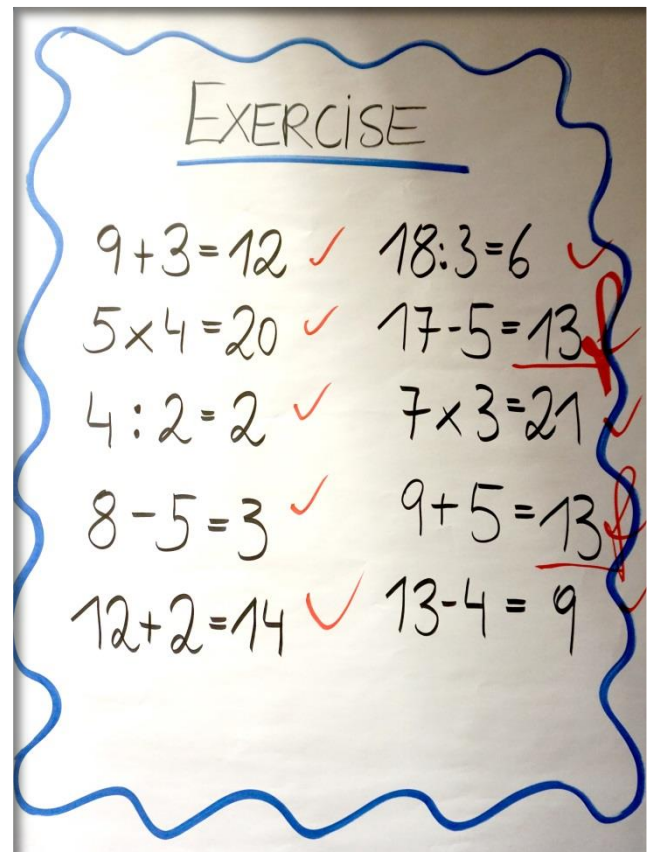 EXERCISE
9+3=12
5x4=20
4:2=2
8-5=3
12+2=14
18:3=6
17-5=13 f
7x3=21
9+5=13 f
13-4=9